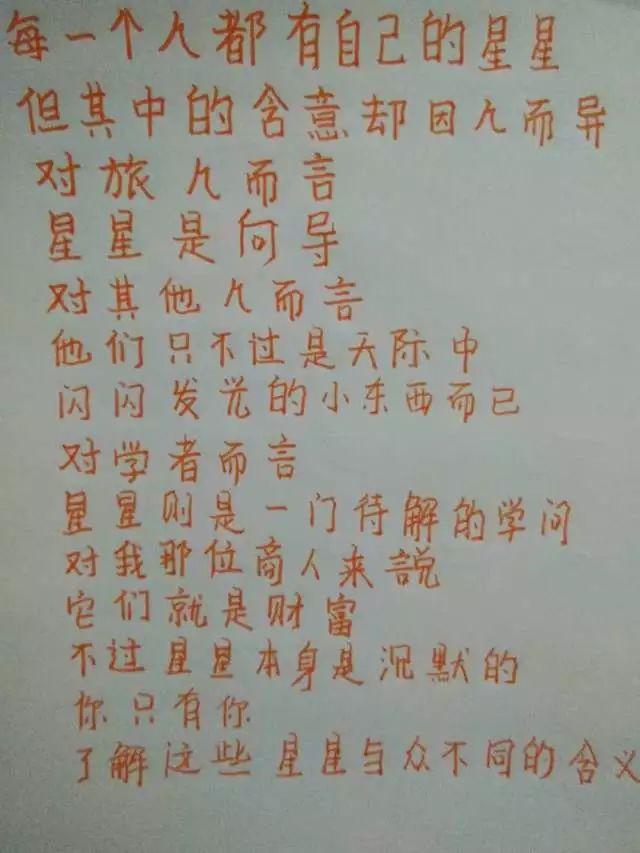 每一个人都有自己的星星
但其中的含意却因人而异
对旅人而言
星星是向导
对其他人而言
他们只不过是天际中
闪闪发光的小东西而已
对学者而言
星星则是一门待解的学问
对我那位商人来説
它们就是财富
不过星星本身是沉默的
你只有你
了解这些星星与众不同的含义